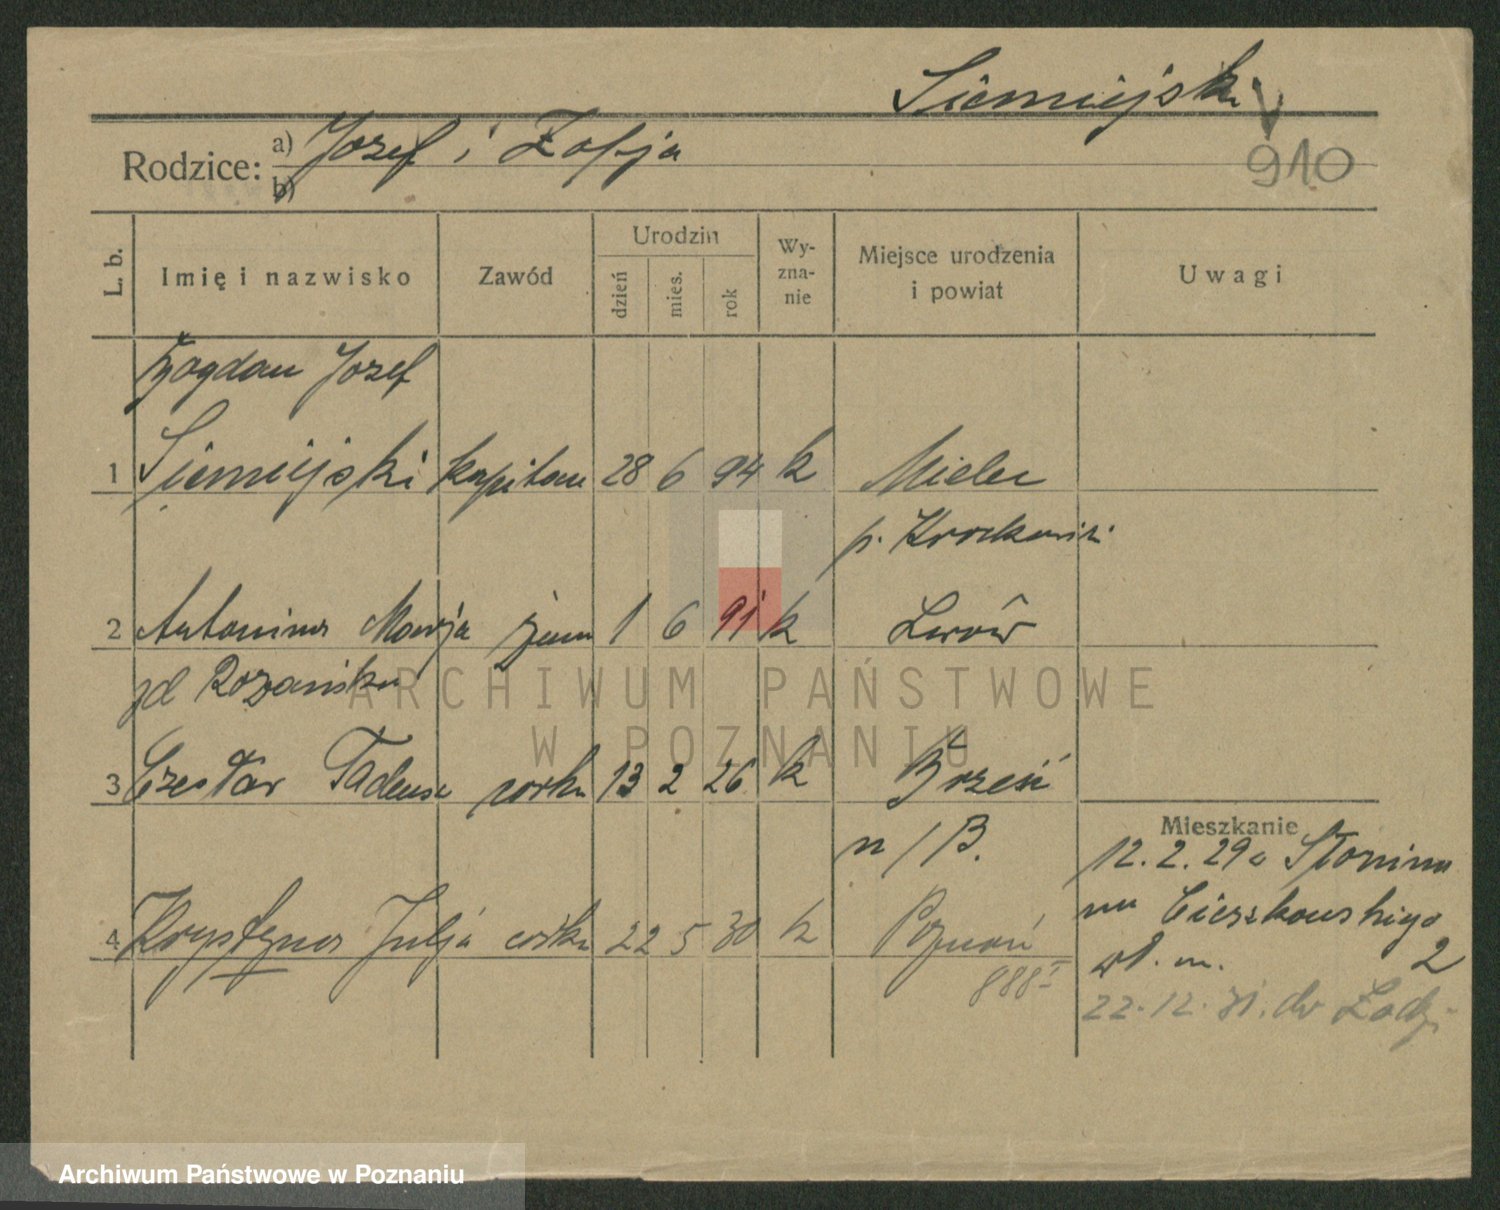 Siemiejski
910
Rodzice: a) Józef i Zofja
b)
L. b.
Imię i nazwisko
Zawód
Urodzin
dzień
mies.
rok
Wy-
zna-
nie
Miejsce urodzenia
i powiat
Uwagi
Bogdan Józef
1 Siemiejski kapitan 28 6 94 k Mielec
p.
2 Antonina Marja żona 1 6 91 k Lwów
zd Rozańska
ARCHIWUM PAŃSTWOWE
W POZNANIU
3 Czesław Tadeusz 13 2 26 k Brześć
n/B.
Mieszkanie
12.2.29 Słonima
Cieszkowskiego
4 Krystyna Julja córka 22 5 30 k Poznań
wł. m. 2
888
22.12.31. do Łodzi
Archiwum Państwowe w Poznaniu